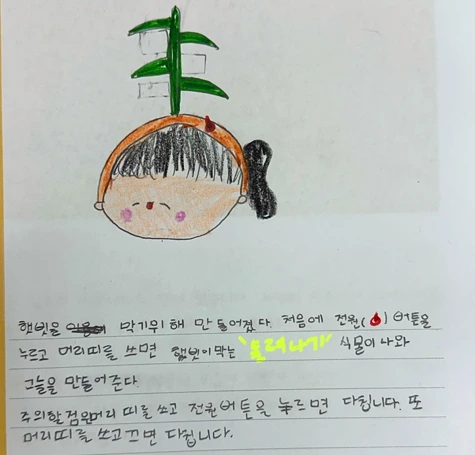 햇빛을 막기위해 만들어졌다. 처음에 전원( ) 버튼을
누르고 머리띠를 쓰면 햇빛이막는 식물이 나와
그늘을 만들어준다.
주의할점원머리 띠를 쓰고 전원버튼을 누르면 다칩니다. 또
머리띠를 쓰고끄면 다칩니다.